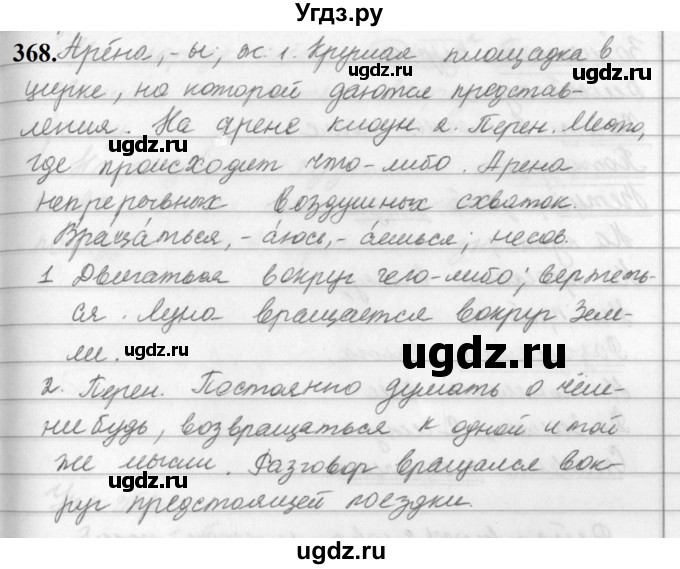 Угдз.ру
368. Арéна, -ы, ж. 1. Круглая площадка в
цирке, на которой даются представ-
ления. На арене клоун 2. Перен. Место,
где происходит что-либо. Арена
непрерывных воздушных схваток.
Вращáться, -áюсь, -áешься; несов.
1 Двигаться вокруг чего-либо; вертеть-
ся. Луна вращается вокруг Зем-
ли.
2. Перен. Постоянно думать о чём-
нибудь, возвращаться к одной и той
же мысли. Разговор вращался вок-
руг предстоящей поездки.
ugdz.ru
ugdz.ru
ugdz.ru
ugdz.ru
ugdz.ru
ugdz.ru
ugdz.ru
ugdz.ru